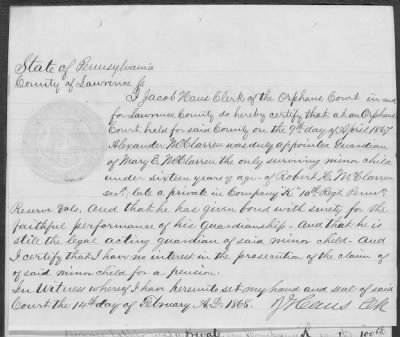 State of Pennsylvania
County of Lawrence ss
I Jacob Haus Clerk of the Orphans Court in and
for Lawrence County do hereby certify that at an Orphans
Court held for said County on the 9th day of April 1867
Alexander McClarren was duly appointed Guardian
of Mary E. McClarren the only surviving minor child
under sixteen years of age of Robert H. McClarren
decd, late a private in Company "K" 10th Regt Penna
Reserve Vols, And that he has given bond with surety for the
faithful performance of his Guardianship. And that he is
still the legal acting guardian of said minor child. And
I certify that I have no interest in the prosecution of the claim of
of said minor child for a pension.
In Witness whereof I have hereunto set my hand and seal of said
Court the 14th day of February A.D. 1868. J Haus Clk